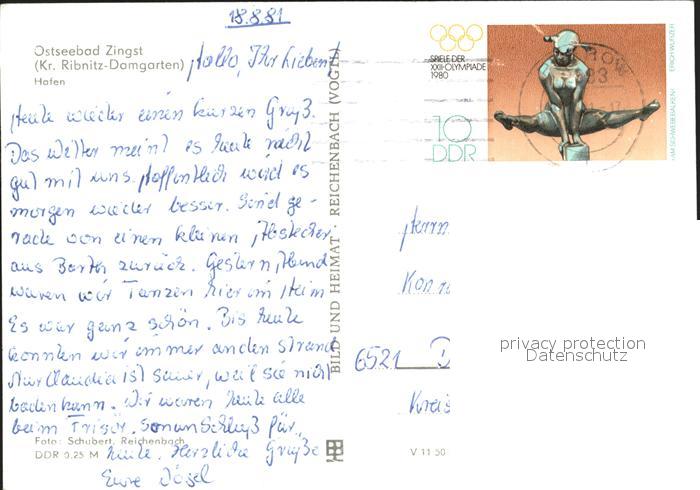 18.8.81
Ostseebad Zingst
(Kr. Ribnitz-Damgarten)
Hafen
Hallo, Ihr Lieben!
Heute wieder einen kurzen Gruß.
Das Wetter meint es heute nicht
gut mit uns. Hoffentlich wird es
morgen wieder besser. Sind ge-
rade von einen kleinen Abstecher
aus Barth zurück. Gestern Abend
waren wir Tanzen hier im Heim
Es war ganz schön. Bis heute
konnten wir immer an den Strand
Nur Claudia ist sauer, weil sie nicht
baden kann. Wir waren heute alle
beim Frisör. So nun Schluß für
heute. Herzliche Grüße
Eure
Foto: Schubert, Reichenbach
DDR 0.25 M
BILD UND HEIMAT REICHENBACH (VOGTL)
V 11 50
SPIELE DER
XXII. OLYMPIADE
1980
10
DDR
ERICH WUNZER
Herrn
6521
Kreis
privacy protection
Datenschutz